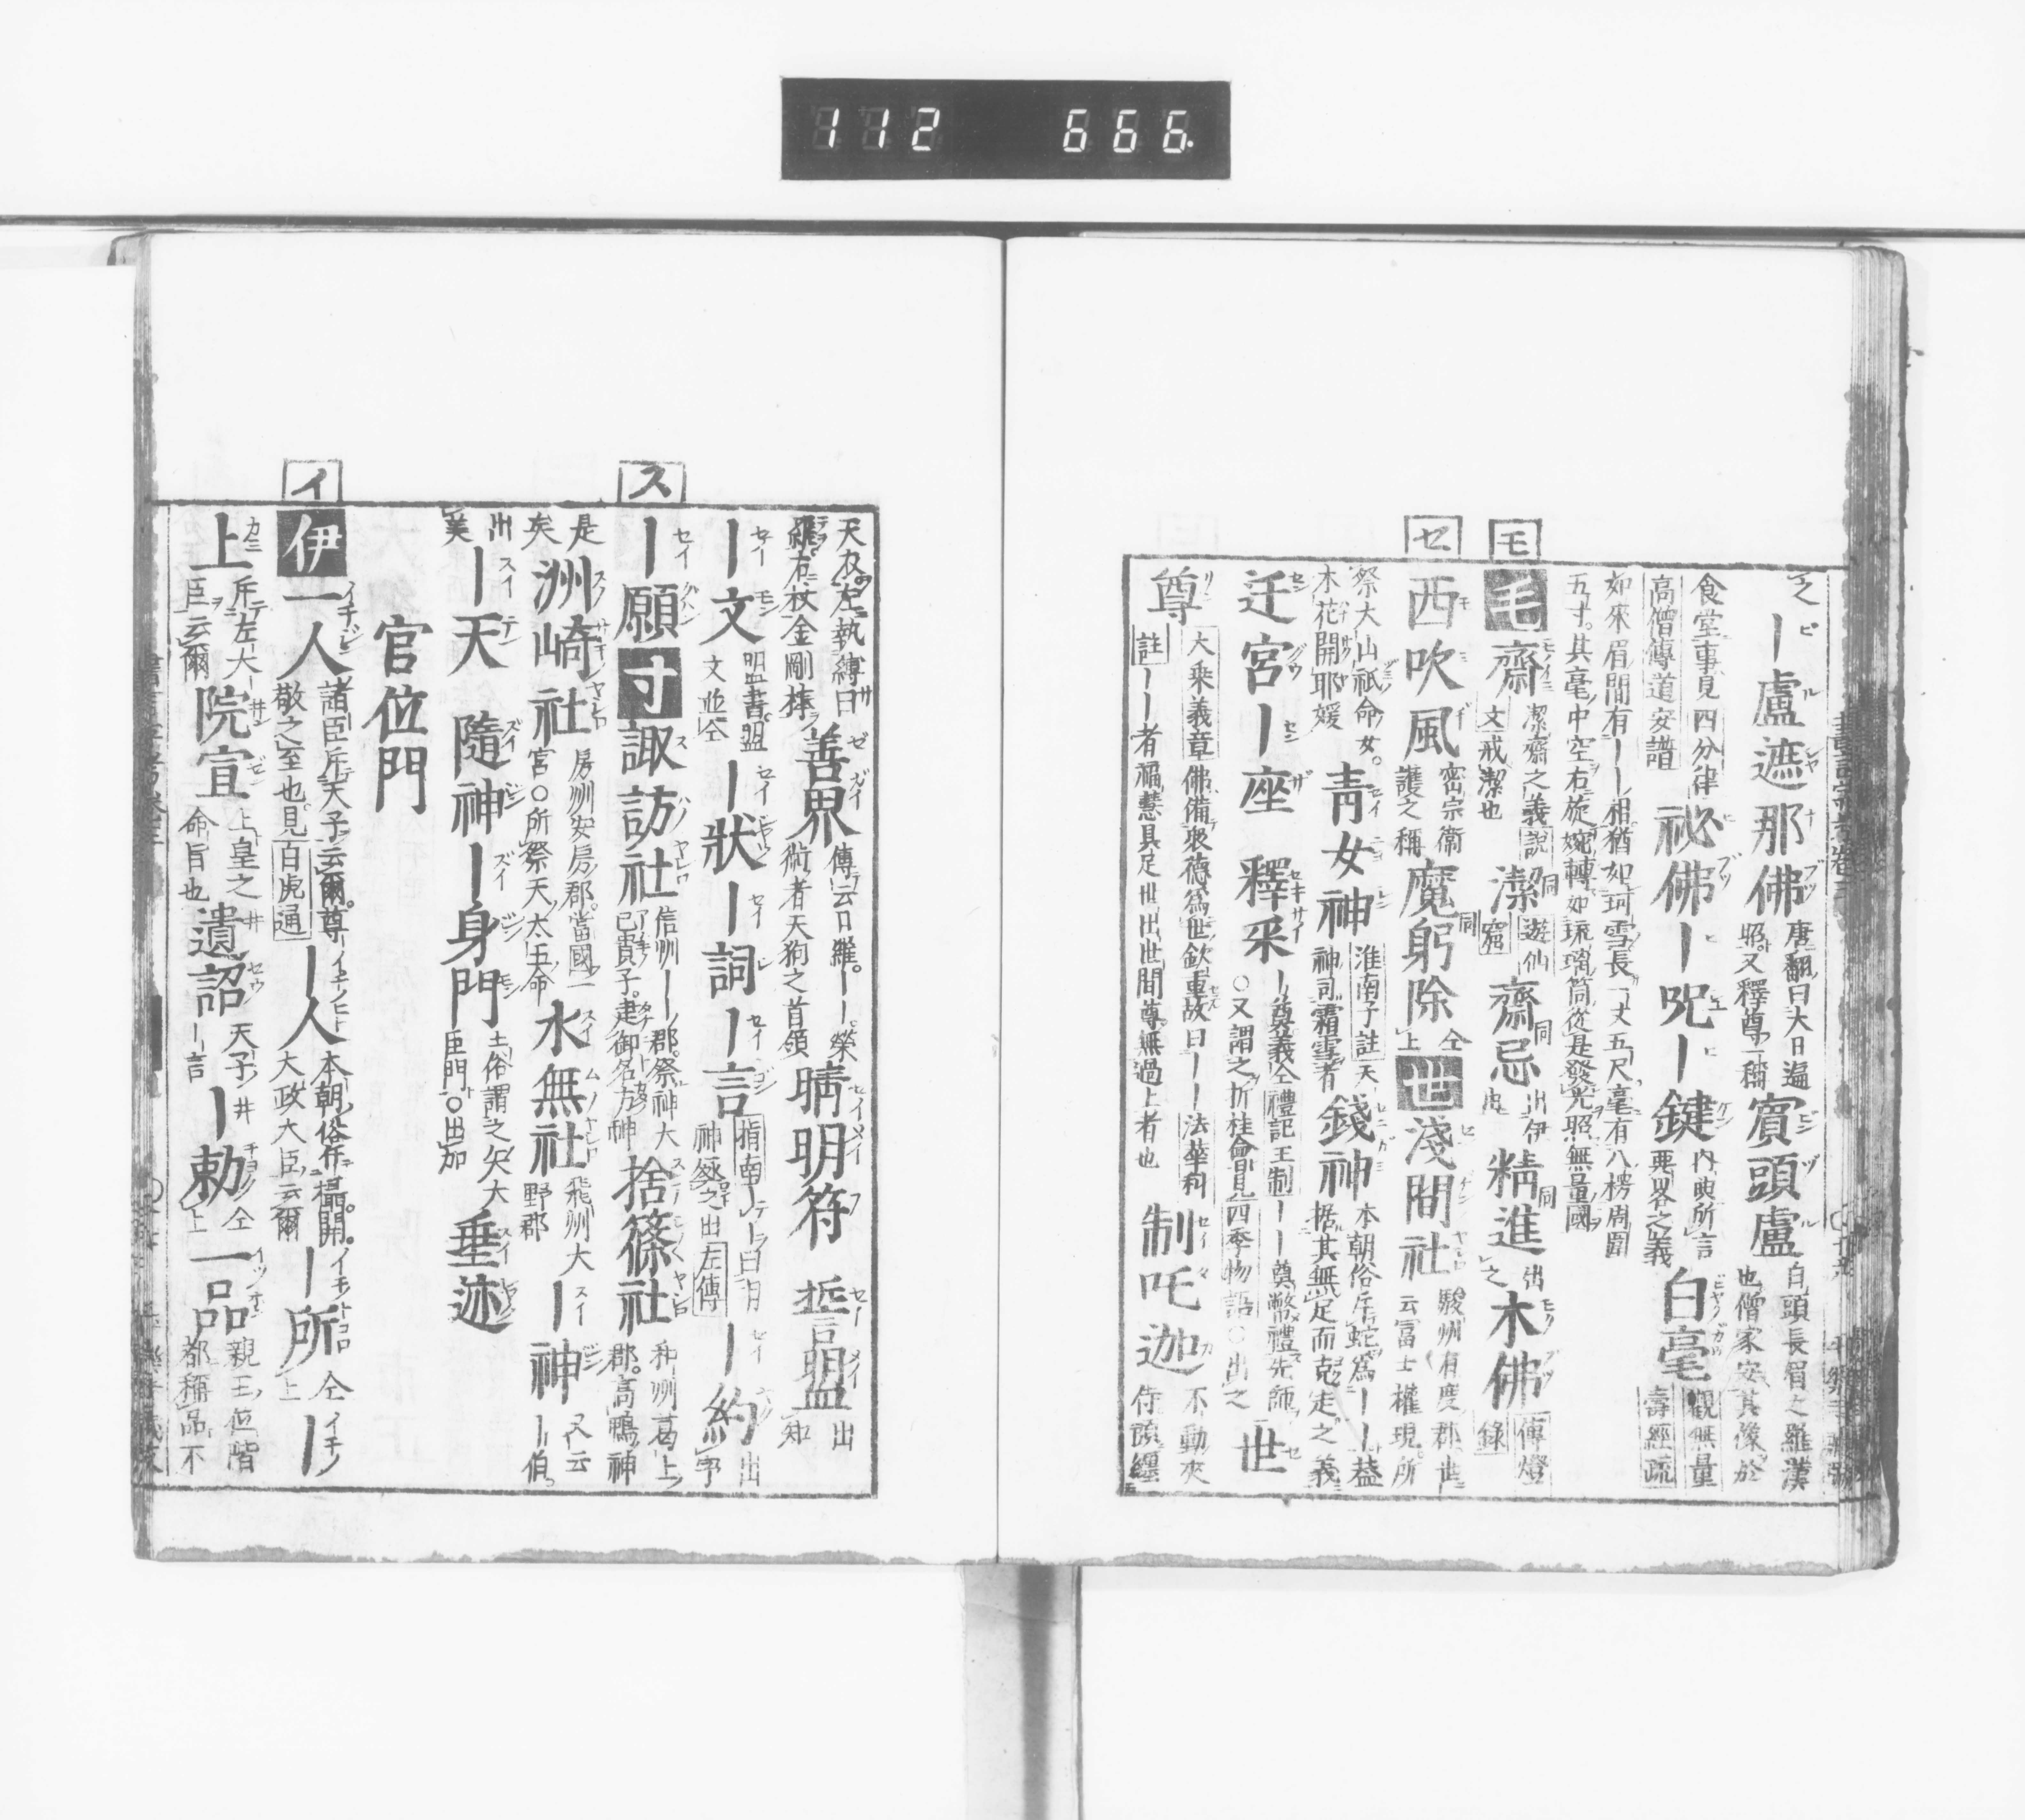 112 666.
之｜盧遮那佛 唐翻曰大日遍照又釋尊一稱 賓頭盧 白頭長眉之羅漢也僧家安其像於
食堂事見四分律高僧傳道安譜 祕佛 ｜呪 ｜鍵 内典所言要畧之義 白毫 觀無量壽經疏
如來眉間有｜｜相猶如珂雪長一丈五尺毫有八楞周圍五寸其毫中空右旋婉轉如琉璃筒從是發光照無量國
モ
毛 齋 潔齋之義說文戒潔也 潔 同遊仙窟 齋忌 同出伊 精進 同出之 木佛 傳燈錄
セ
西吹風 密宗衛護之稱 魔躬除 同仝上 世 淺間社 駿州有度郡世云冨士權現所
祭大山祇命女木花開耶媛 青女神 淮南子註天神司霜雪者 錢神 本朝俗斥蛇為｜｜蓋据其無足而走之義
迁宮 ｜座 釋采 ｜奠義仝禮記王制｜｜奠幣禮先師○又謂之折桂會見四季物語○出之 世
尊 大乘義章佛備衆德為世欽重故曰｜｜法華科註｜｜者福慧具足世出世間尊無過上者也 制吒迦 不動夾侍頭纒
天衣左執縛日羅右杖金剛捧 善界 傳云日羅｜｜榮術者天狗之首領 晴明符 誓盟 出知
｜文 盟書盟文並仝 ｜狀 ｜詞 ｜言 指南｜｜曰月神極之出左傳 ｜約 出字
ス
｜願 寸 諏訪社 信州｜｜郡祭神大已貴子建御名方神 捨篠社 和州葛上郡高鴨神
是矣 洲崎社 房州安房郡當國一宮○所祭天太玉命 水無社 飛州大野郡 ｜神 又云｜伯
州美 ｜天 隨神 ｜身門 土俗謂之矢大臣門○出加 垂迹
官位門
イ
伊 一人 諸臣斥天子云爾尊敬之至也見百虎通 ｜人 本朝俗作攝開大政大臣云爾 ｜所 仝上 ｜
上 斥左大臣云爾 院宣 上皇之命旨也 遺詔 天子｜言 ｜勅 仝上 一品 親王位階都稱品不